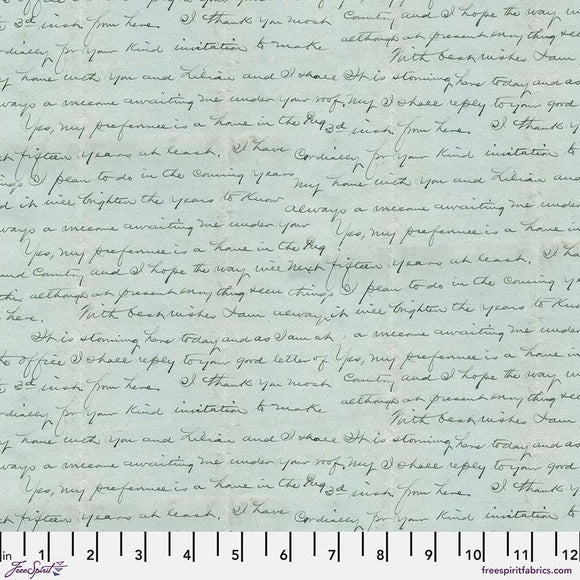 e 3d inst from here. I thank you most Country and I hope the way w
ordially for your kind invitation to make although at present
With best wishes I am
y home with you and Lilian and I shall It is storming here today and as
ways a welcome awaiting me under your roof. My I shall reply to your good
Yes, my preference is a home in the 3d inst from here. I thank y
t fifteen years at least. I have Cordially for your kind invitation to
ings I plan to do in the coming years My home with you and Lilian and
d it will brighten the years to know always a welcome awaiting me under
ways a welcome awaiting me under your Yes, my preference is a home in
Yes, my preference is a home in the years at least. I ha
und Country and I hope the way will next fifteen
although at present things I plan to do in the coming y
here. With best wishes I am always, it will brighten the years to know
It is storming here today and as I am at a welcome awaiting me under
office I shall reply to your good letter of Yes, my preference is a home in
e 3d inst from here. I thank you most Country and I hope the way w
ordially for your kind invitation to make although at present
With best wishes I am
y home with you and Lilian and I shall It is storming here today and as
ways a welcome awaiting me under your roof. My I shall reply to your good
Yes, my preference is a home in the 3d inst from here. I thank y
t fifteen years at least. I have Cordially for your kind invitation to
in 1 2 3 4 5 6 7 8 9 10 11 12
FreeSpirit freespiritfabrics.com